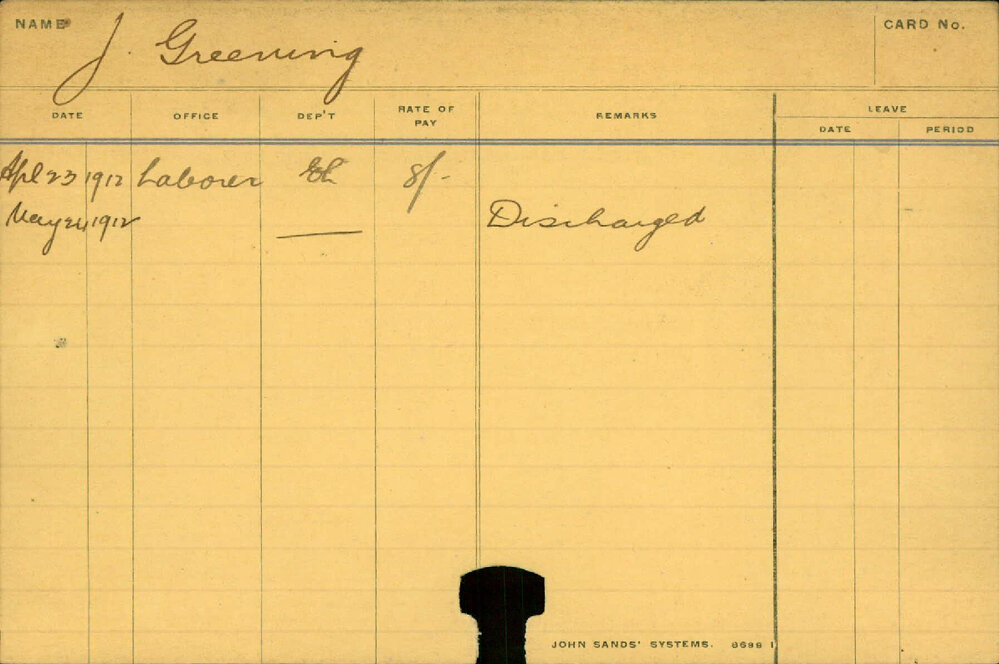 NAME J. Greening CARD No.
DATE OFFICE DEP'T RATE OF PAY REMARKS LEAVE
DATE PERIOD
Apl 23 1912 Laborer 8/-
May 24 1912 Discharged
JOHN SANDS' SYSTEMS.